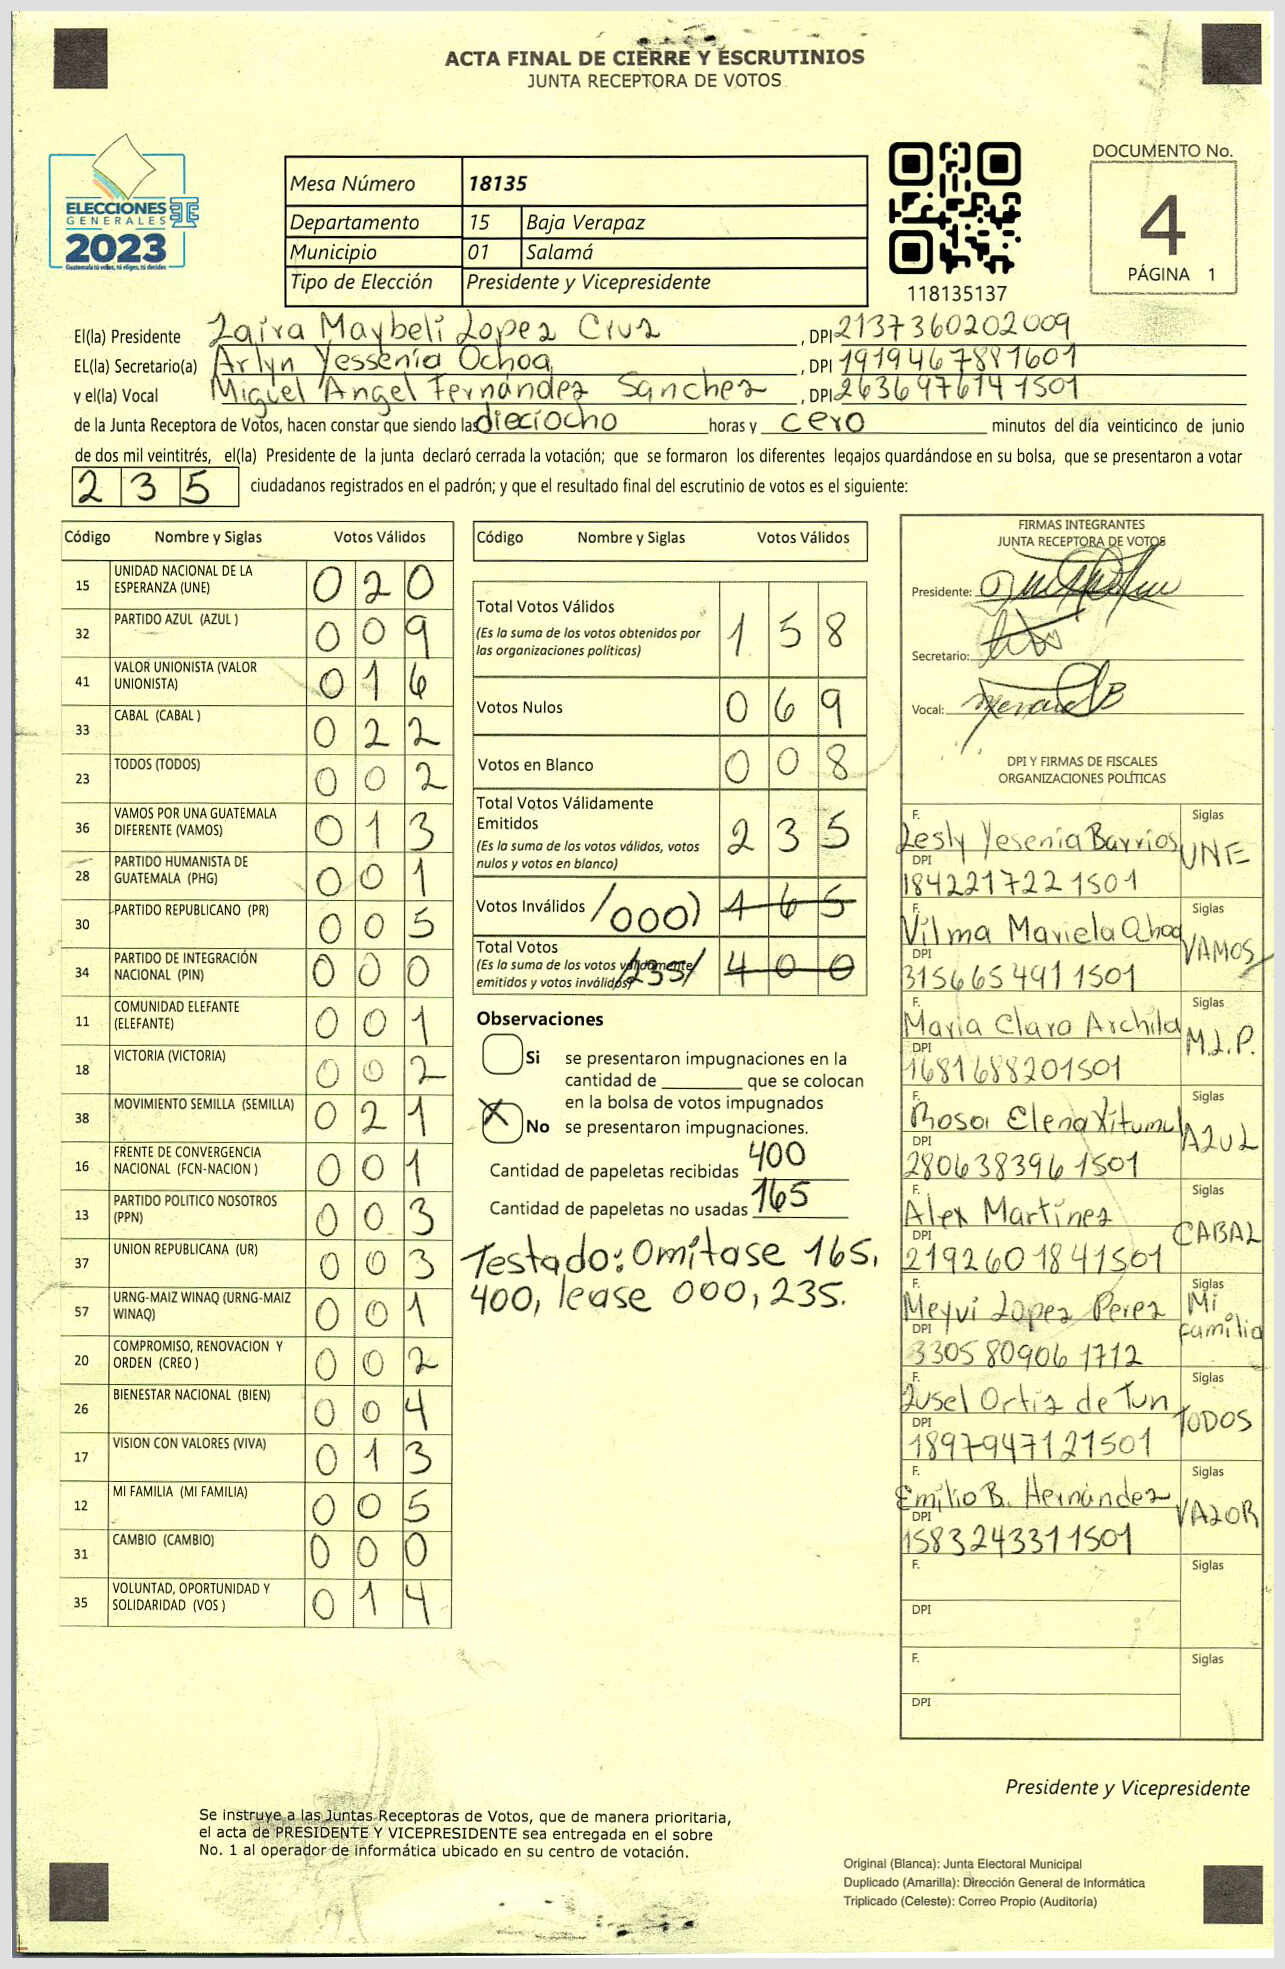 ACTA FINAL DE CIERRE Y ESCRUTINIOS
JUNTA RECEPTORA DE VOTOS
ELECCIONES
GENERALES
2023
Guatemala tú votas, tú eliges, tú decides
Mesa Número 18135
Departamento 15 Baja Verapaz
Municipio 01 Salamá
Tipo de Elección Presidente y Vicepresidente
118135137
DOCUMENTO No.
4
PÁGINA 1
El(la) Presidente Zaira Maybeli Lopez Cruz, DPI 2137360202009
EL(la) Secretario(a) Arlyn Yessenia Ochoa, DPI 1919467881601
y el(la) Vocal Miguel Angel Fernández Sanchez, DPI 2636976141501
de la Junta Receptora de Votos, hacen constar que siendo las dieciocho horas y cero minutos del día veinticinco de junio
de dos mil veintitrés, el(la) Presidente de la junta declaró cerrada la votación; que se formaron los diferentes legajos guardándose en su bolsa, que se presentaron a votar
235 ciudadanos registrados en el padrón; y que el resultado final del escrutinio de votos es el siguiente:
Código Nombre y Siglas Votos Válidos
15 UNIDAD NACIONAL DE LA ESPERANZA (UNE) 020
32 PARTIDO AZUL (AZUL ) 009
41 VALOR UNIONISTA (VALOR UNIONISTA) 016
33 CABAL (CABAL ) 022
23 TODOS (TODOS) 002
36 VAMOS POR UNA GUATEMALA DIFERENTE (VAMOS) 013
28 PARTIDO HUMANISTA DE GUATEMALA (PHG) 001
30 PARTIDO REPUBLICANO (PR) 005
34 PARTIDO DE INTEGRACIÓN NACIONAL (PIN) 000
11 COMUNIDAD ELEFANTE (ELEFANTE) 001
18 VICTORIA (VICTORIA) 002
38 MOVIMIENTO SEMILLA (SEMILLA) 021
16 FRENTE DE CONVERGENCIA NACIONAL (FCN-NACION ) 001
13 PARTIDO POLITICO NOSOTROS (PPN) 003
37 UNION REPUBLICANA (UR) 003
57 URNG-MAIZ WINAQ (URNG-MAIZ WINAQ) 001
20 COMPROMISO, RENOVACION Y ORDEN (CREO ) 002
26 BIENESTAR NACIONAL (BIEN) 004
17 VISION CON VALORES (VIVA) 013
12 MI FAMILIA (MI FAMILIA) 005
31 CAMBIO (CAMBIO) 000
35 VOLUNTAD, OPORTUNIDAD Y SOLIDARIDAD (VOS ) 014
Código Nombre y Siglas Votos Válidos
Total Votos Válidos 158
(Es la suma de los votos obtenidos por
las organizaciones políticas)
Votos Nulos 069
Votos en Blanco 008
Total Votos Válidamente
Emitidos 235
(Es la suma de los votos válidos, votos
nulos y votos en blanco)
Votos Inválidos /000) 165
Total Votos
(Es la suma de los votos válidamente
emitidos y votos inválidos) /235/ 400
Observaciones
Si se presentaron impugnaciones en la
cantidad de ________ que se colocan
en la bolsa de votos impugnados
X No se presentaron impugnaciones.
Cantidad de papeletas recibidas 400
Cantidad de papeletas no usadas 165
Testado: Omítase 165,
400, lease 000, 235.
FIRMAS INTEGRANTES
JUNTA RECEPTORA DE VOTOS
Presidente:
Secretario:
Vocal:
DPI Y FIRMAS DE FISCALES
ORGANIZACIONES POLÍTICAS
F. Lesly Yesenia Barrios Siglas UNE
DPI 1842217221501
F. Vilma Mariela Ochoa Siglas VAMOS
DPI 3156654911501
F. Maria Clara Archila Siglas M.L.P.
DPI 1681688201501
F. Rosa Elena Xitumul Siglas AZUL
DPI 2806383961501
F. Alex Martínez Siglas CABAL
DPI 2192601841501
F. Meyvi Lopez Perez Siglas Mi familia
DPI 3305809061712
F. Zusel Ortiz de Tun Siglas TODOS
DPI 1897947121501
F. Emilio B. Hernández Siglas VALOR
DPI 1583243311501
F. Siglas
DPI
F. Siglas
DPI
Presidente y Vicepresidente
Se instruye a las Juntas Receptoras de Votos, que de manera prioritaria,
el acta de PRESIDENTE Y VICEPRESIDENTE sea entregada en el sobre
No. 1 al operador de informática ubicado en su centro de votación.
Original (Blanca): Junta Electoral Municipal
Duplicado (Amarilla): Dirección General de Informática
Triplicado (Celeste): Correo Propio (Auditoría)